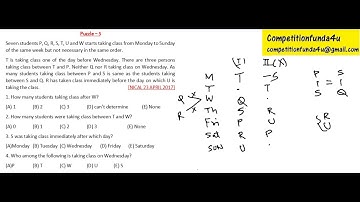 Puzzle - 3
Competitionfunda4u
competitionfunda4u@gmail.com
Seven students P, Q, R, S, T, U and W starts taking class from Monday to Sunday
of the same week but not necessary in the same order.
T is taking class one of the day before Wednesday. There are three persons
taking class between T and P. Neither Q nor R taking class on Wednesday. As
many students taking class between P and S is same as the students taking
between S and Q. R has taken class immediately before the day on which U is
taking the class. [NICAL 23 APRIL 2017]
1. How many students taking class after W?
(A) 1 (B) 2 (C) 3 (D) can't determine (E) None
2. How many students were taking class between T and W?
(A) 0 (B) 1 (C) 2 (D) 3 (E) None
3. S was taking class immediately after which day?
(A)Monday (B) Tuesday (C) Wednesday (D) Friday (E) Saturday
4. Who among the following is taking class on Wednesday?
(A)P (B) T (C) W (D) U (E) None
(I) II (X)
M T - S
T . T
Q W Q .
R Th S R
Fri P U
Sat R P
Sun U .
P S
1 = 1
S Q
{ R
U